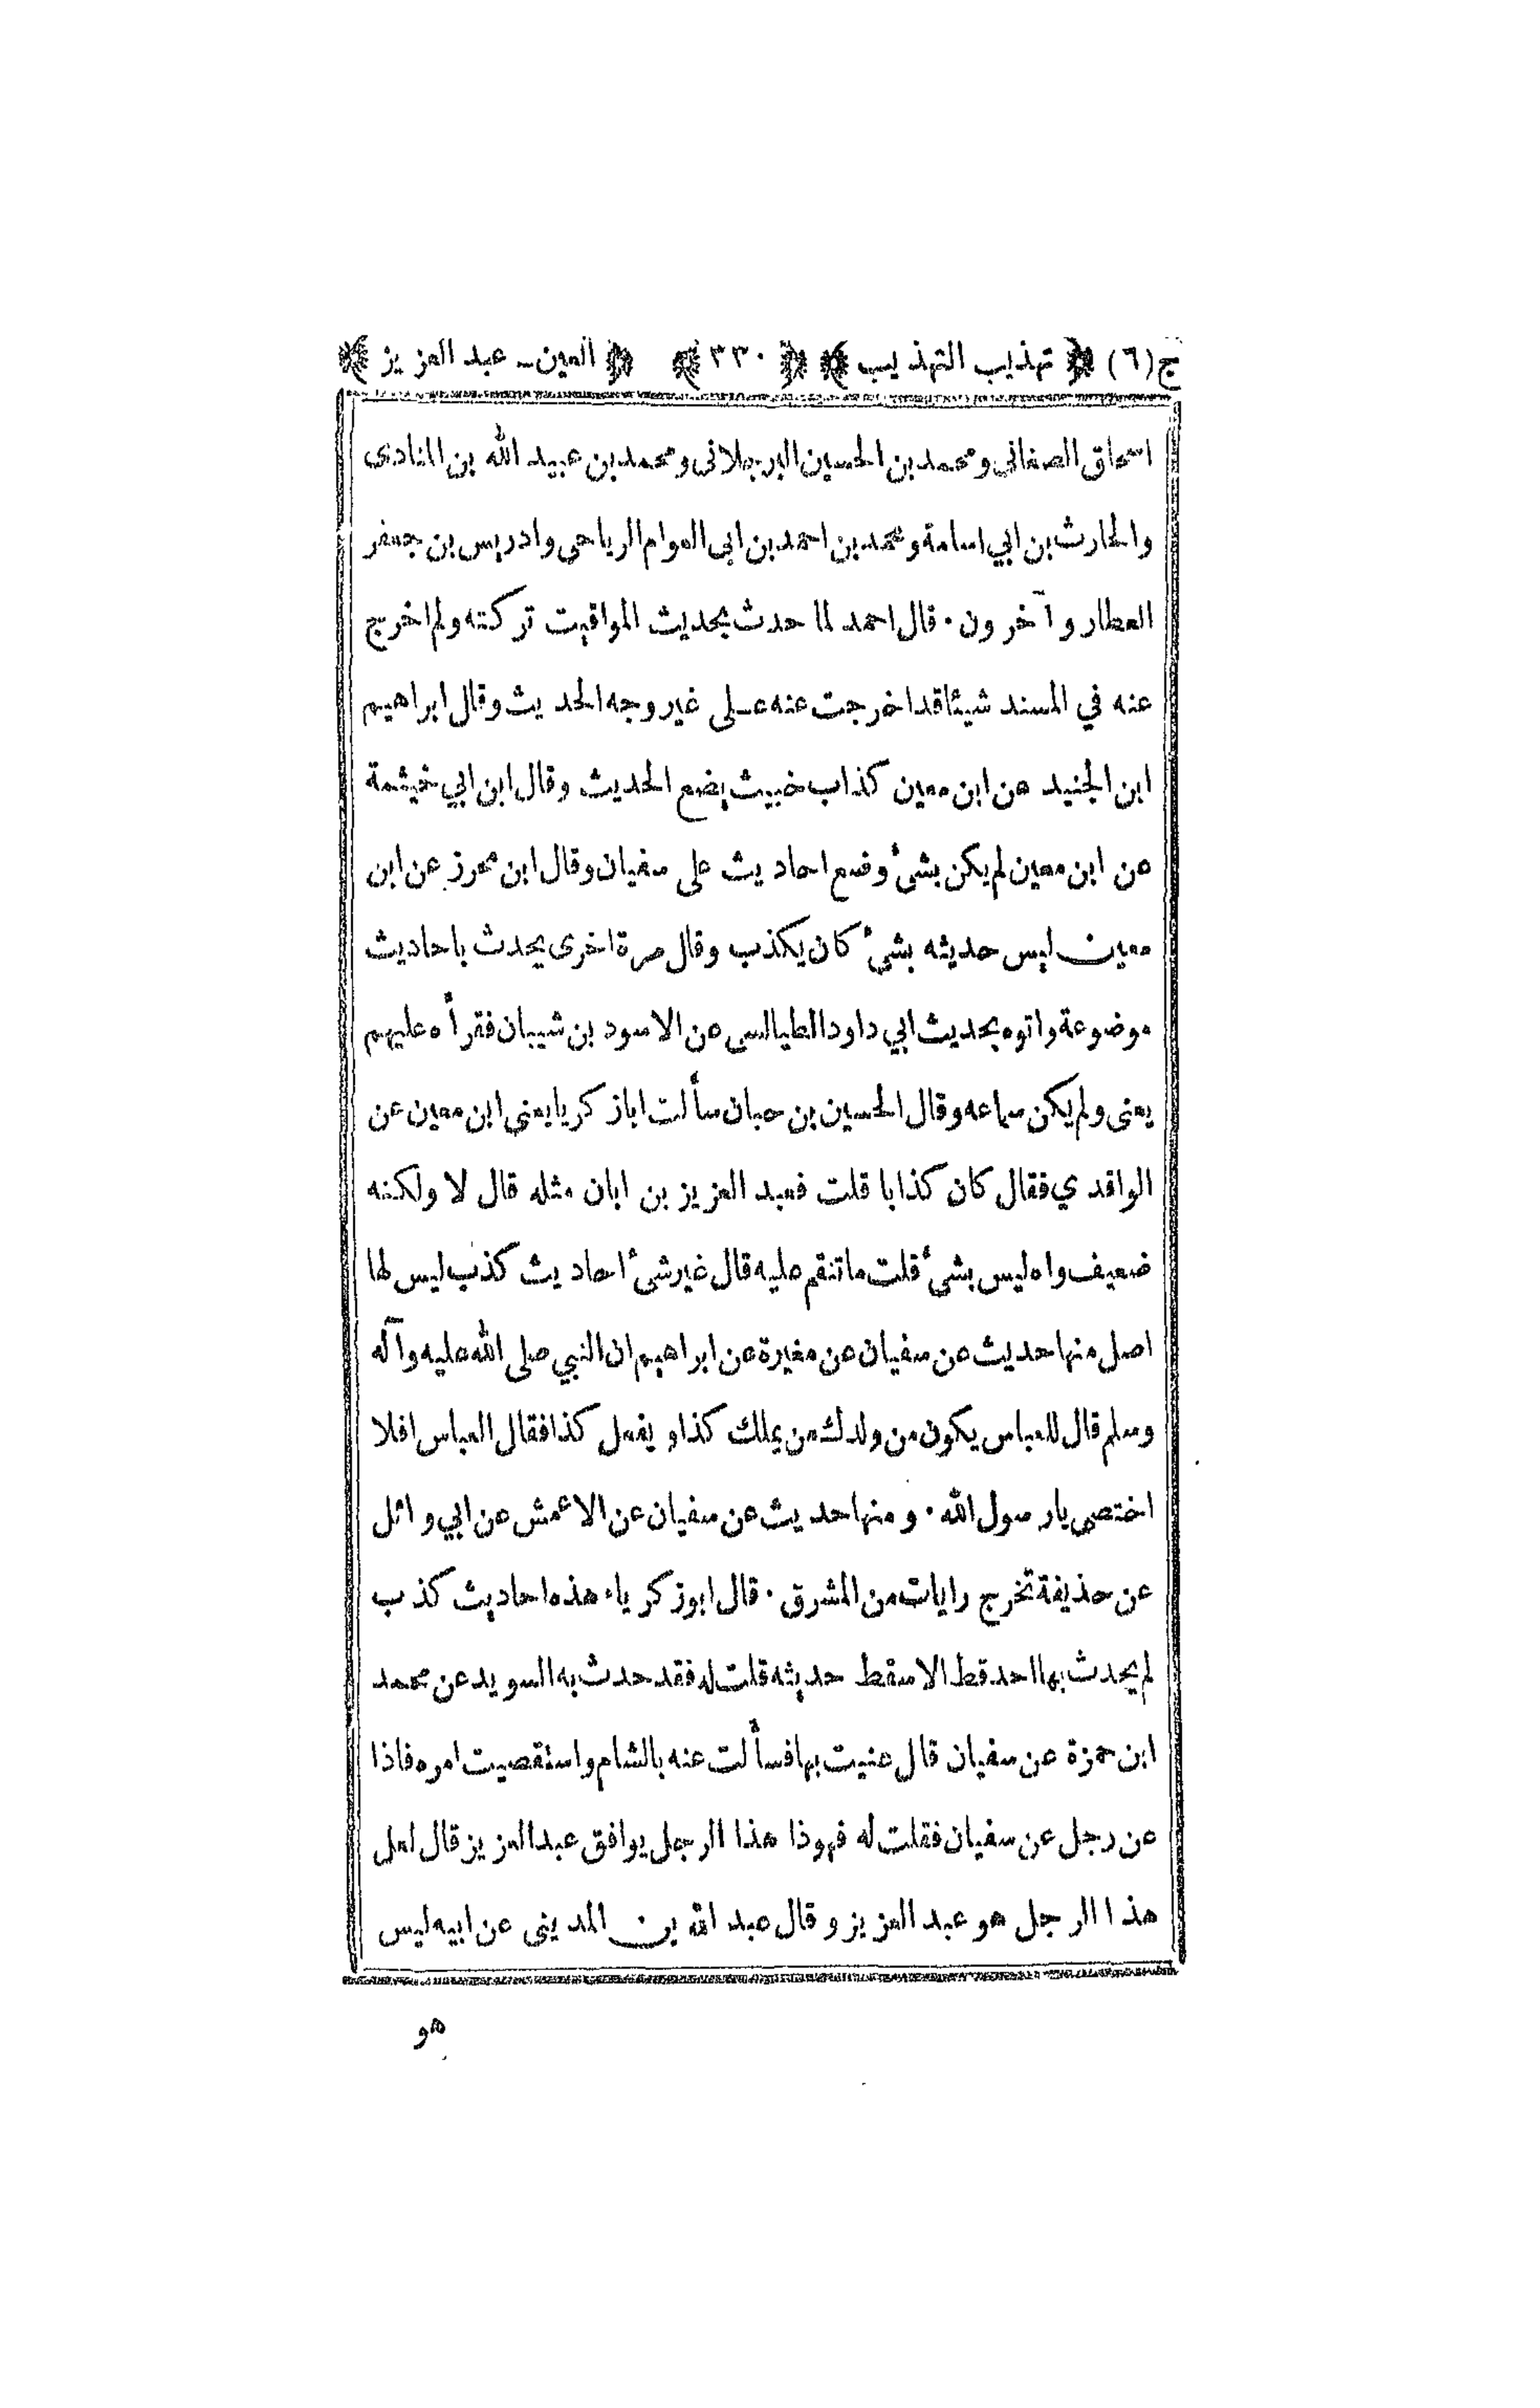 ج (٦) ﴿ تهذيب التهذيب ﴾ ﴿ ٣٣٠ ﴾ ﴿ العين - عبد العزيز ﴾
اسحاق الصغانى ومحمد بن الحسين البرجلانى ومحمد بن عبيد الله بن المنادى
والحارث بن ابي اسامة ومحمد بن احمد بن ابى العوام الرياحى وادريس بن جعفر
العطار و آخرون · قال احمد لما حدث بحديث المواقيت تركته ولم اخرج
عنه في المسند شيئا قد اخرجت عنه على غير وجه الحديث وقال ابراهيم
ابن الجنيد عن ابن معين كذاب خبيث يضع الحديث وقال ابن ابي خيثمة
عن ابن معين لم يكن بشىٔ وضع احاديث على سفيان وقال ابن محرز عن ابن
معين ليس حديثه بشىٔ كان يكذب وقال مرة اخرى يحدث باحاديث
موضوعة واتوه بحديث ابي داود الطيالسى عن الاسود بن شيبان فقرأه عليهم
يعنى ولم يكن سماعه وقال الحسين بن حبان سألت ابا زكريا يعنى ابن معين عن
الواقدي فقال كان كذابا قلت فعبد العزيز بن ابان مثله قال لا ولكنه
ضعيف واه ليس بشىٔ قلت ما تنقم عليه قال غير شىٔ احاديث كذب ليس لها
اصل منها حديث عن سفيان عن مغيرة عن ابراهيم ان النبي صلى الله عليه وآله
وسلم قال للعباس يكون من ولدك من يملك كذا و يفعل كذا فقال العباس افلا
اختصى يارسول الله · و منها حديث عن سفيان عن الاعمش عن ابي وائل
عن حذيفة تخرج رايات من المشرق · قال ابوزكرياء هذه احاديث كذب
لم يحدث بها احد قط الا سقط حديثه قلت له فقد حدث به السويد عن محمد
ابن حمزة عن سفيان قال عنيت بها فسألت عنه بالشام واستقصيت امره فاذا
عن رجل عن سفيان فقلت له فهوذا هذا الرجل يوافق عبد العزيز قال لعل
هذا الرجل هو عبد العزيز و قال عبد الله بن المدينى عن ابيه ليس
هو